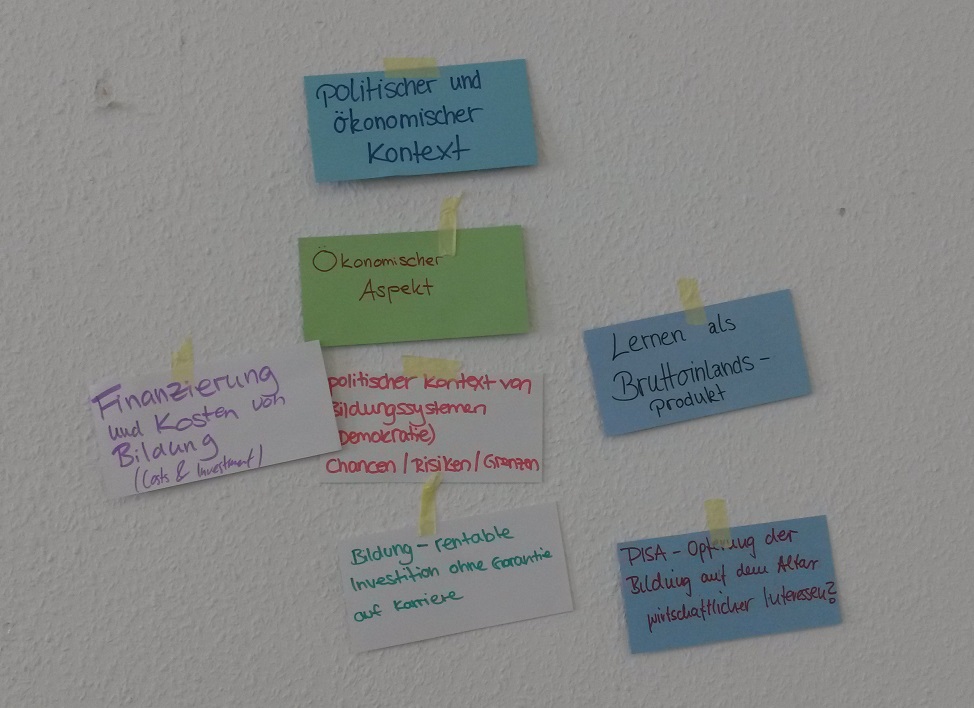 politischer und
ökonomischer
Kontext
Ökonomischer
Aspekt
Lernen als
Bruttoinlands-
produkt
Finanzierung
und Kosten von
Bildung
(Costs & Investment)
politischer Kontext von
Bildungssystemen
(Demokratie)
Chancen / Risiken / Grenzen
Bildung - rentable
Investition ohne Garantie
auf Karriere
PISA - der
Bildung auf dem Altar
wirtschaftlicher Interessen?